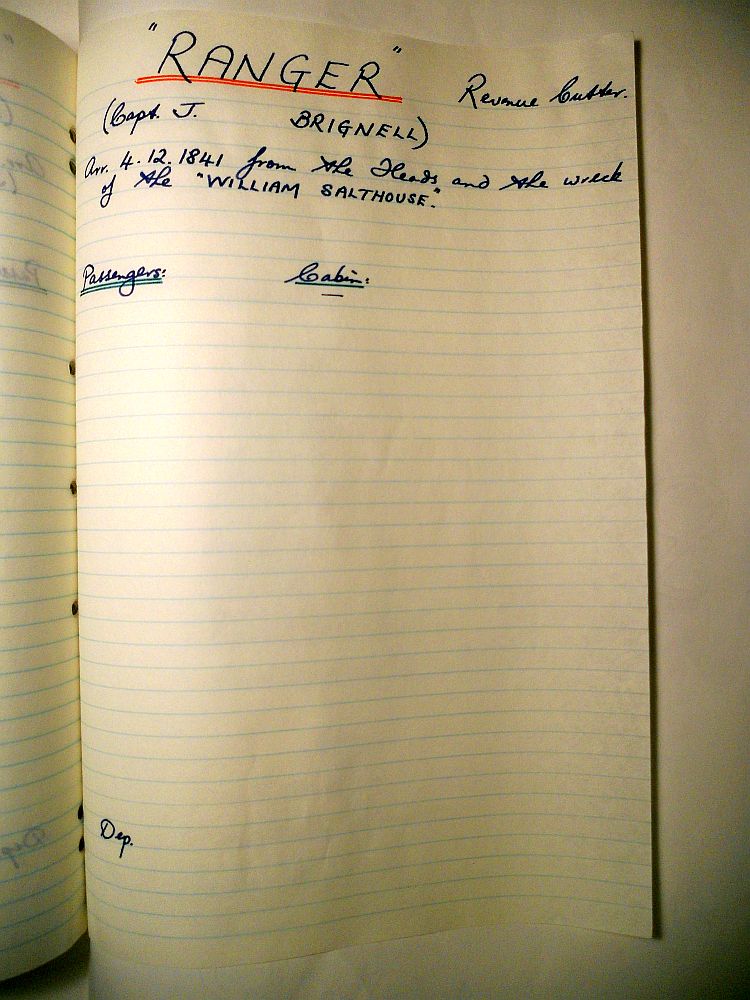 "RANGER" Revenue Cutter.
(Capt. J. BRIGNELL)
Arr. 4.12.1841 from the Heads and the wreck
of the "WILLIAM SALTHOUSE."
Passengers: Cabin:
Dep.